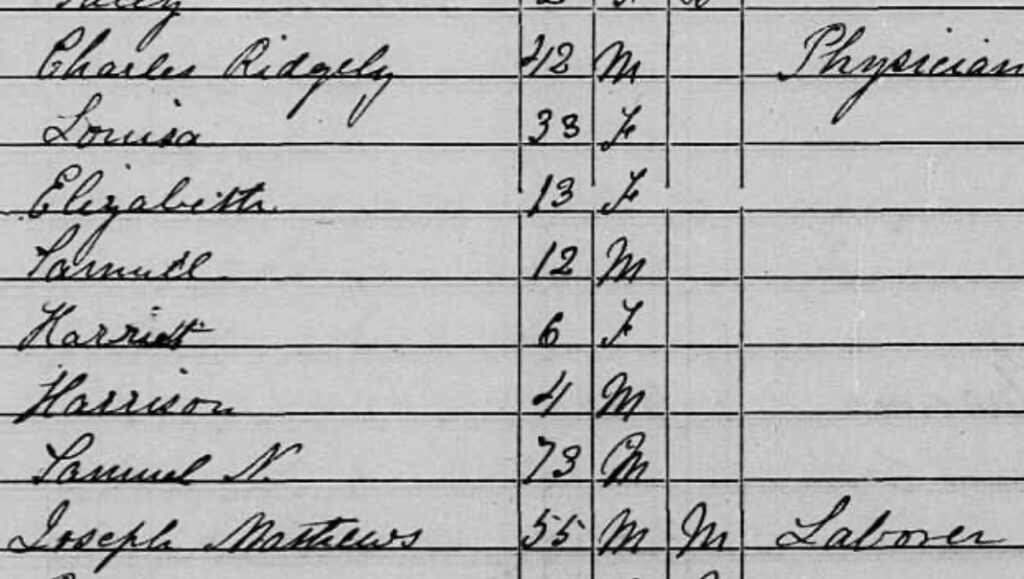 Charles Ridgely 42 M Physician
Louisa 33 F
Elizabeth 13 F
Samuel 12 M
Harriet 6 F
Harrison 4 M
Samuel N. 73 M
Joseph Mathews 55 M M Laborer